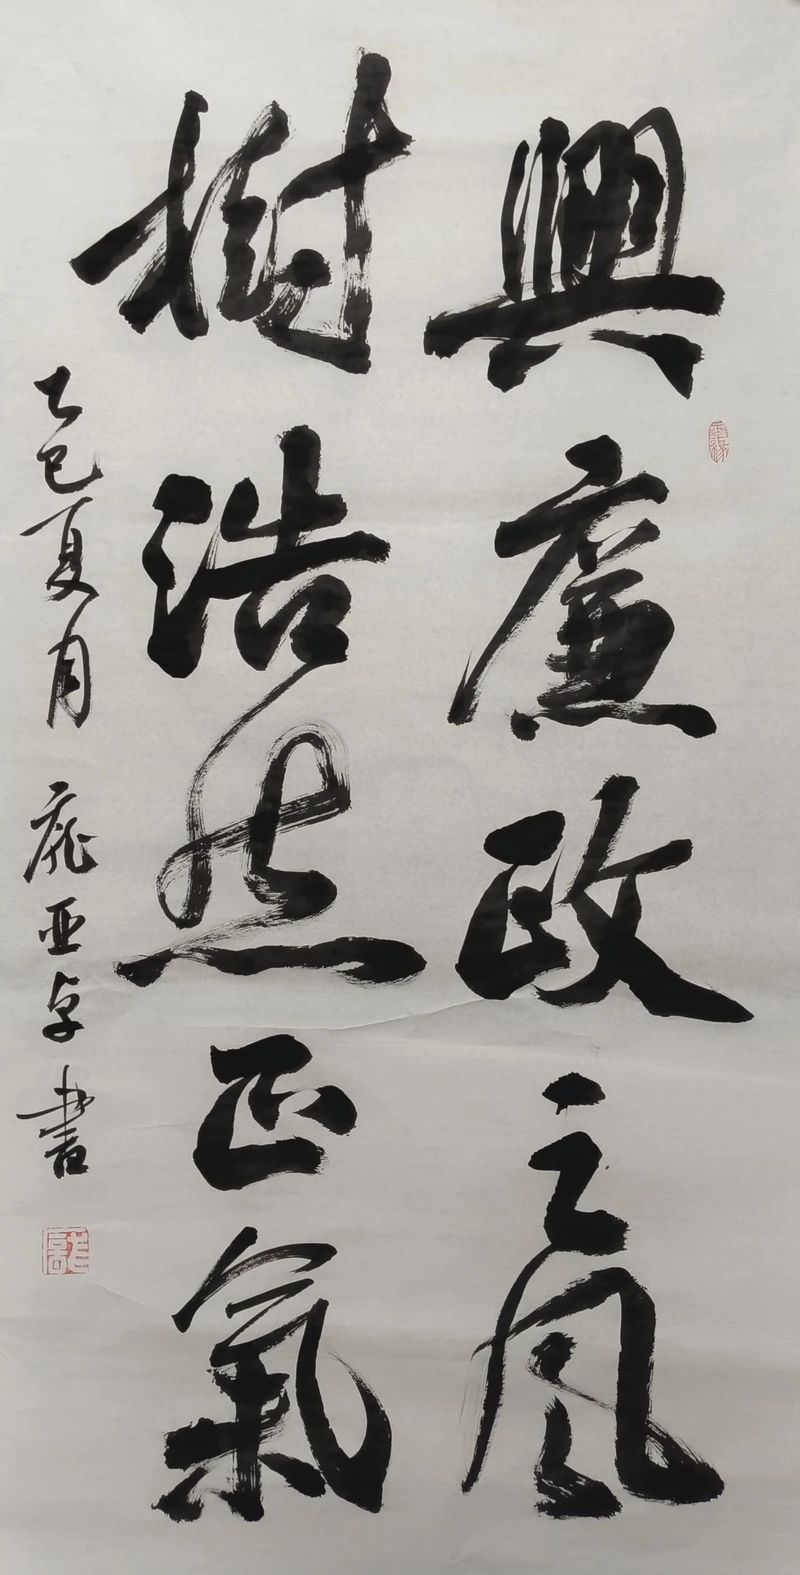 興廉政之風
樹浩然正氣
乙巳夏月 龐亚卓書